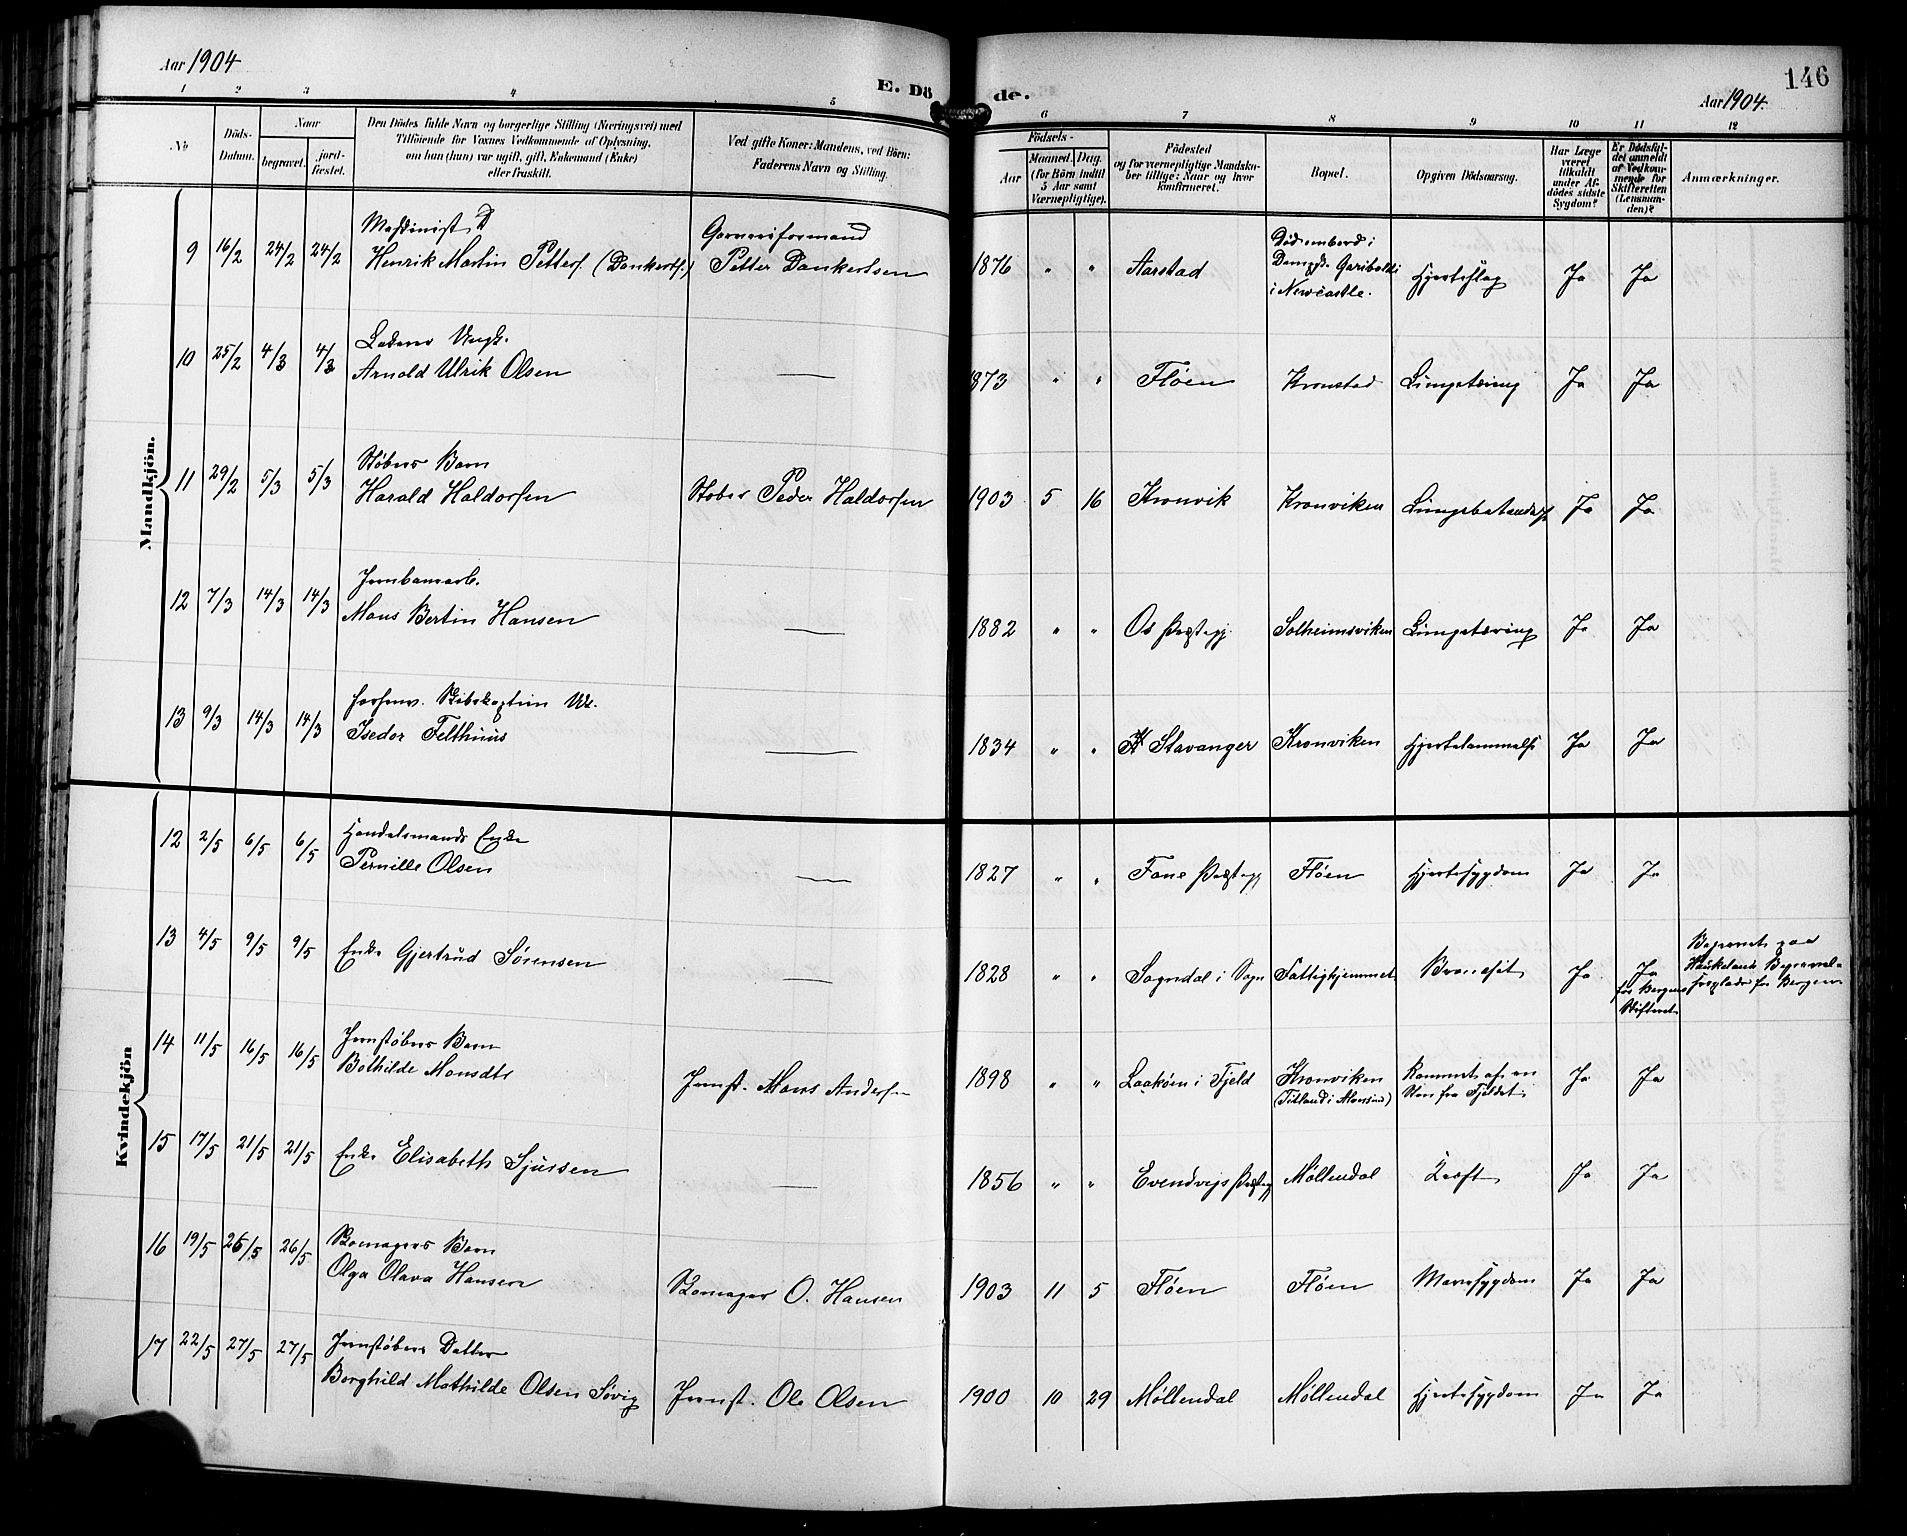 Aar 1904
E. Döde.
146
Aar 1904.
1 2 3 4 5 6 7 8 9 10 11 12
No
Döds-Datum.
Naar
begravet.
jord-fæstet.
Den Dödes fulde Navn og borgerlige Stilling (Næringsvei) med
Tilföiende for Voxnes Vedkommende af Oplysning,
om han (hun) var ugift, gift, Enkemand (Enke)
eller fraskilt.
Ved gifte Koner: Mandens, ved Börn:
Faderens Navn og Stilling.
Födsels-
Aar
Maaned. Dag.
(for Börn indtil
5 Aar samt
Værnepligtige).
Födested
og for værnepligtige Mandsku-
ber tillige: Naar og hvor
konfirmeret.
Bopæl.
Opgiven Dödsaarsag.
Har Læge
været
tilkaldt
under Af-
dödes sidste
Sygdom?
Er Dödsfal-
det anmeldt
af Vedkom-
mende for
Skifteretten
(Lensman-
den)?
Anmærkninger.
Mandkjön.
9 16/2 24/2 24/2 Maskinist
Henrik Martin Petters. (Dankerts.) Petter Dankertsen 1876 " " Aarstad Död ombord i
Dampsk. Garibaldi
i Newcastle. Hjerteslag Ja Ja
10 25/2 4/3 4/3 Ungk.
Arnold Ulrik Olsen — 1873 " " Flöen Kronstad Lungetæring Ja Ja
11 29/2 5/3 5/3 Støbers Barn
Harald Haldorsen Støber Peder Haldorsen 1903 5 16 Kronvik Kronviken Ja Ja
12 7/3 14/3 14/3 Jernbanearb.
Mons Bertin Hansen — 1882 " " Os Præstegj. Solheimsviken Lungetæring Ja Ja
13 9/3 14/3 14/3 forhenv. Skibskaptein
Isedor Felthuus — 1834 " " Stavanger Kronviken Ja Ja
Kvindekjön
12 2/5 6/5 6/5 Handelsmands Enke
Pernille Olsen — 1827 " " Fane Præstegj Flöen Hjertesygdom Ja Ja
13 4/5 9/5 9/5 Enke Gjertrud Sörensen — 1828 " " Sogndal i Sogn Fattighjemmet Bronchit Ja Ja
for Bergens
Skifteret Begravet paa
Haukelands Begravel-
sesplads for Bergen
14 11/5 16/5 16/5 Jernstøbers Barn
Bothilde Monsdtr Jernst. Mons Anders.n 1898 " " i Fjeld Kronviken Rammet af en
Sten fra Fjeldet Ja Ja
15 17/5 21/5 21/5 Enke Elisabeth Sjursen — 1856 " " Evendvigs Præstegj Møllendal Kræft Ja Ja
16 19/5 26/5 26/5 Skomagers Barn
Olga Olava Hansen Skomager O. Hansen 1903 11 5 Flöen Flöen Mavesygdom Ja Ja
17 22/5 27/5 27/5 Jernstøbers Datter
Borghild Mathilde Olsen Søvig Jernst. Ole Olsen 1900 10 29 Møllendal Møllendal Hjertesygdom Ja Ja